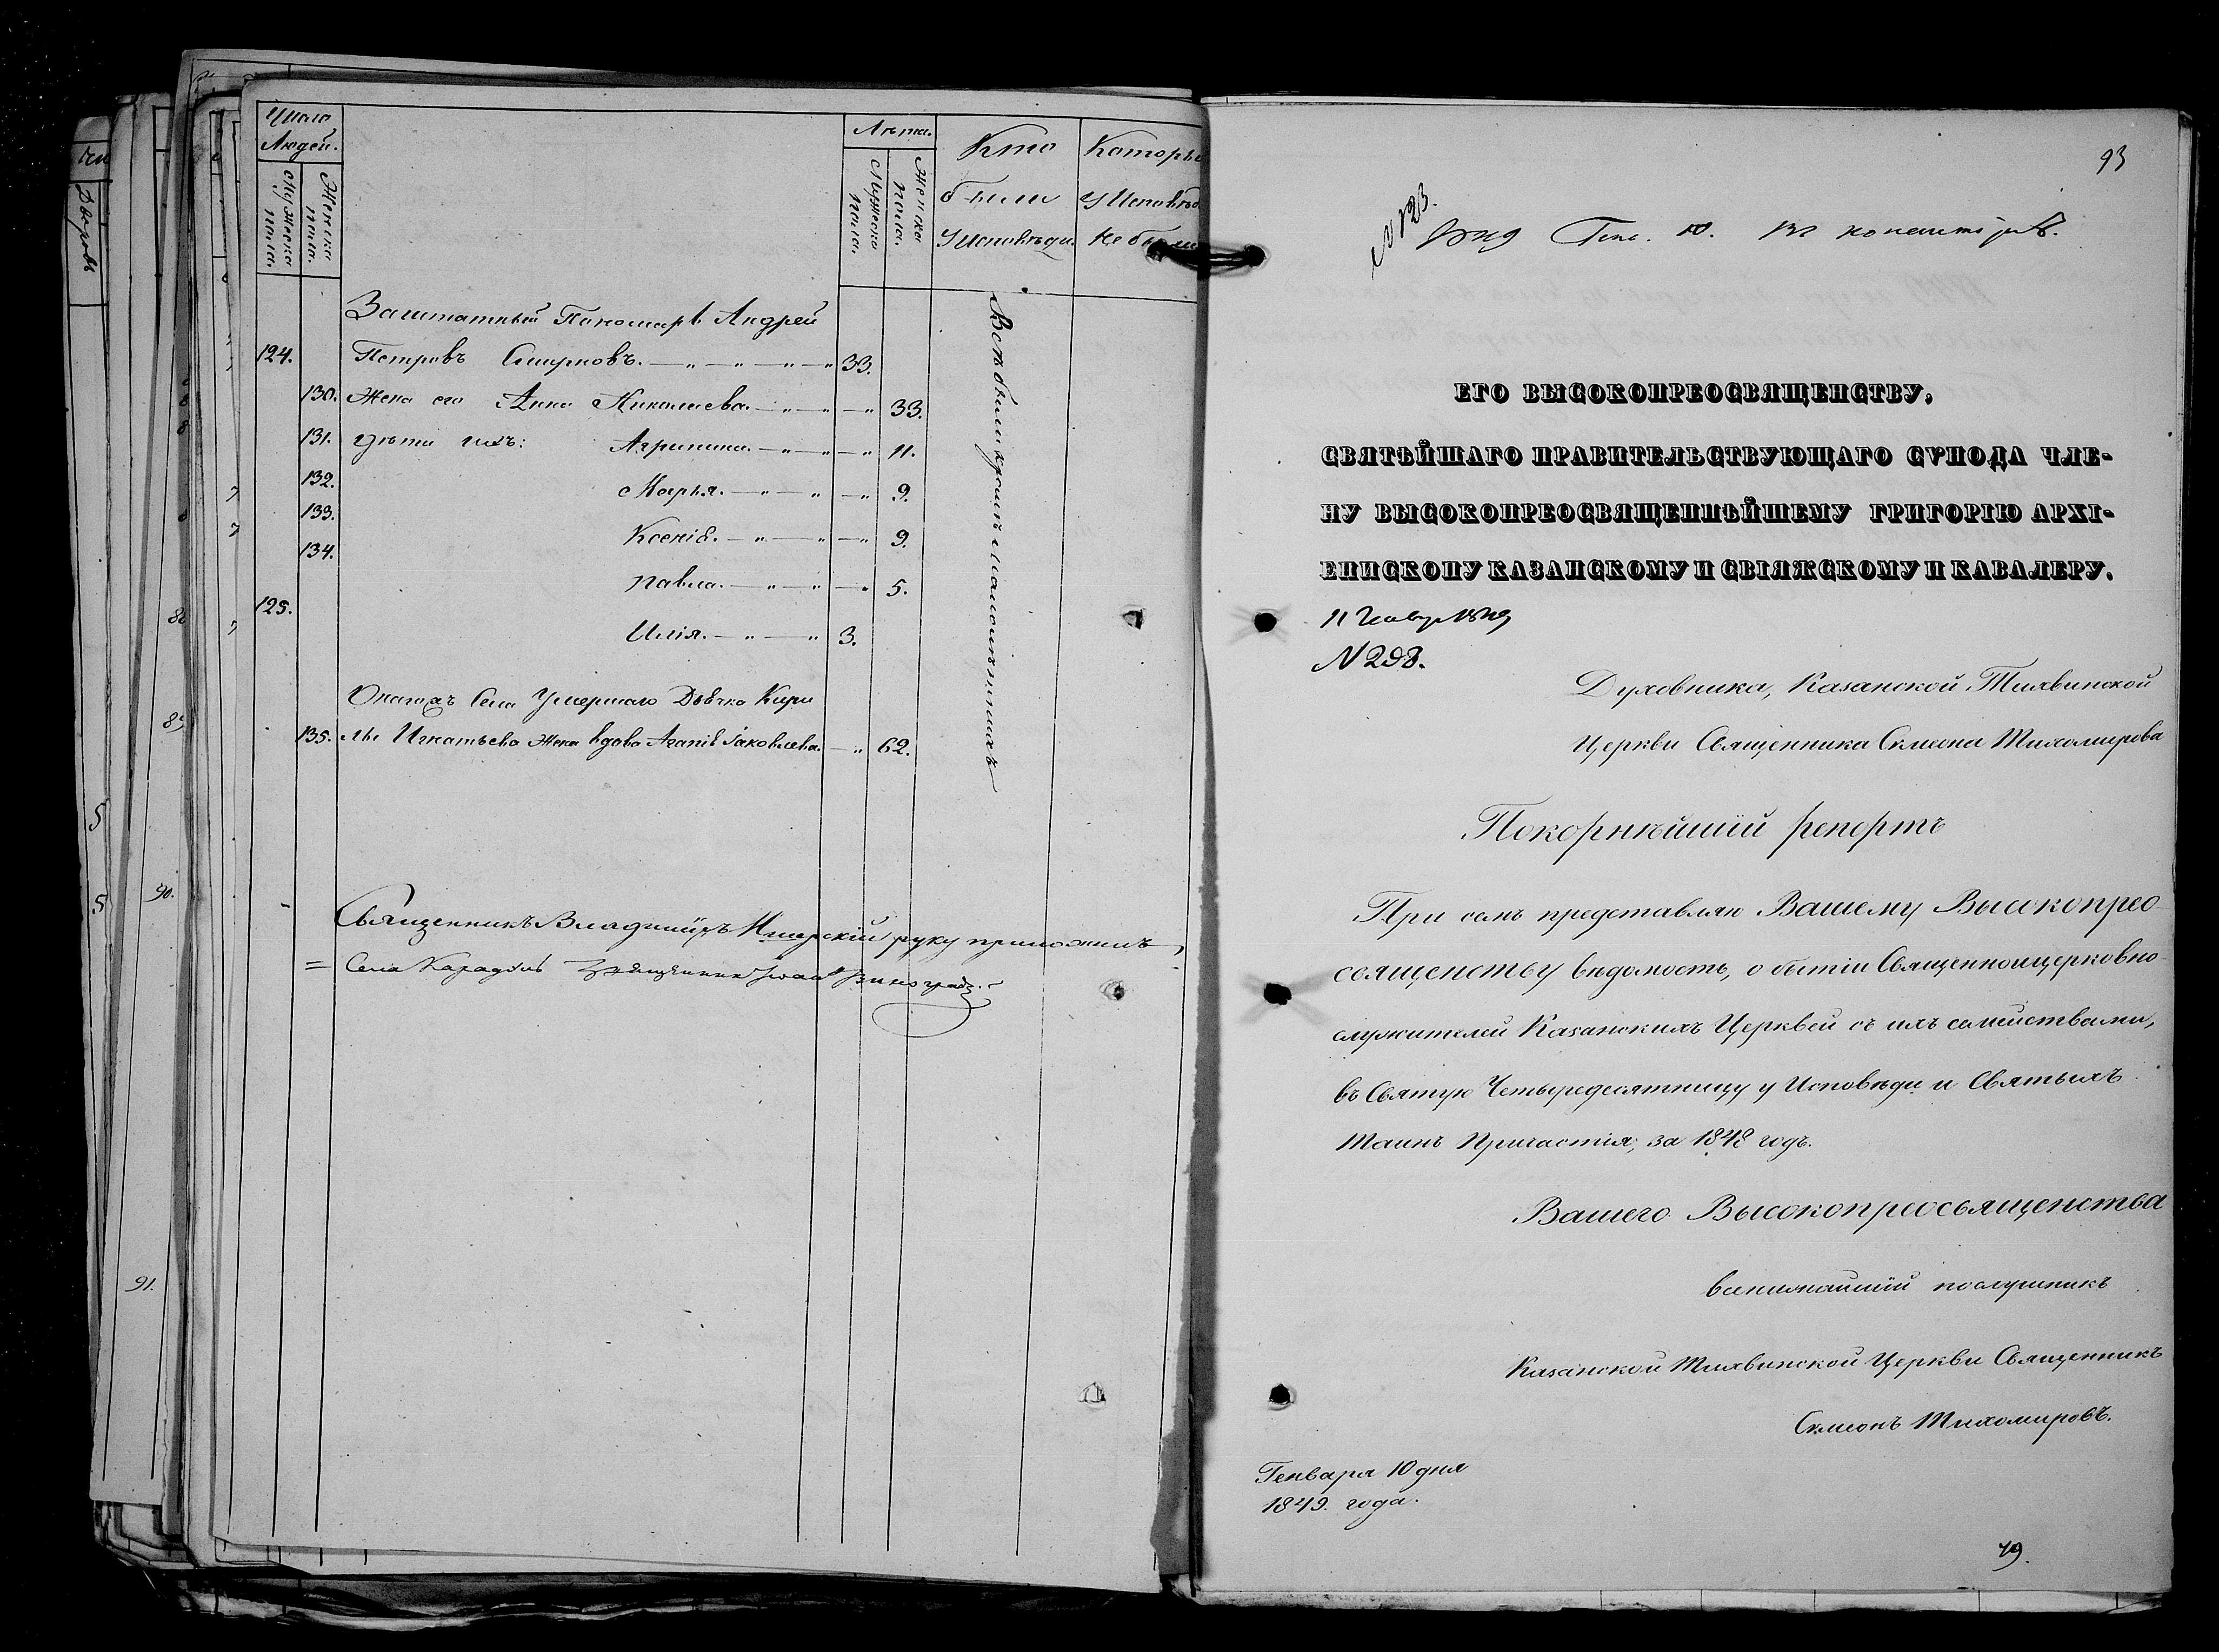 Число
Людей.
Мужеска
пола.
Женска
пола.
Лѣта.
Мужеска
пола.
Женска
пола.
Кто
были
у Исповѣди.
Которые
у Исповѣд.
не были
Заштатный Пономарь Андрей
124. Петровъ Смирновъ. 33.
130. Жена его Анна Николаева. 33.
131. дѣти ихъ: Агрипина. 11.
132. Марья. 9.
133. Ксенія. 9.
134. Павла. 5.
125. Илія. 3.
Онагожъ Села Умершаго Дьячка Кири
135. лы Игнатьева жена вдова Агапія Іаковлева. 62.
Всѣ были кромѣ малолѣтнихъ
Священникъ Владиміръ руку приложилъ,
Села Священникъ Іоаннъ
82
89
90.
91.
5
5
93
N 123.
ЕГО ВЫСОКОПРЕОСВЯЩЕНСТВУ,
СВЯТѢЙШАГО ПРАВИТЕЛЬСТВУЮЩАГО СѴНОДА ЧЛЕ-
НУ ВЫСОКОПРЕОСВЯЩЕННѢЙШЕМУ ГРИГОРІЮ АРХІ-
ЕПИСКОПУ КАЗАНСКОМУ И СВІЯЖСКОМУ И КАВАЛЕРУ.
11 Генвр 1849
N 298.
Духовника, Казанской Тихвинской
Церкви Священника Симеона Тихомирова
Покорнѣйшій репортъ
При семъ представляю Вашему Высокопрео-
священству вѣдомость, о бытіи Священноицерковно-
служителей Казанскихъ Церквей съ ихъ семействами,
въ Святую Четыредесятницу у Исповѣди и Святыхъ
Таинъ Причастія, за 1848 годъ.
Вашего Высокопреосвященства
внижайшій послушникъ
Казанской Тихвинской Церкви Священникъ
Симеонъ Тихомировъ.
Генваря 10 дня
1849. года.
79.